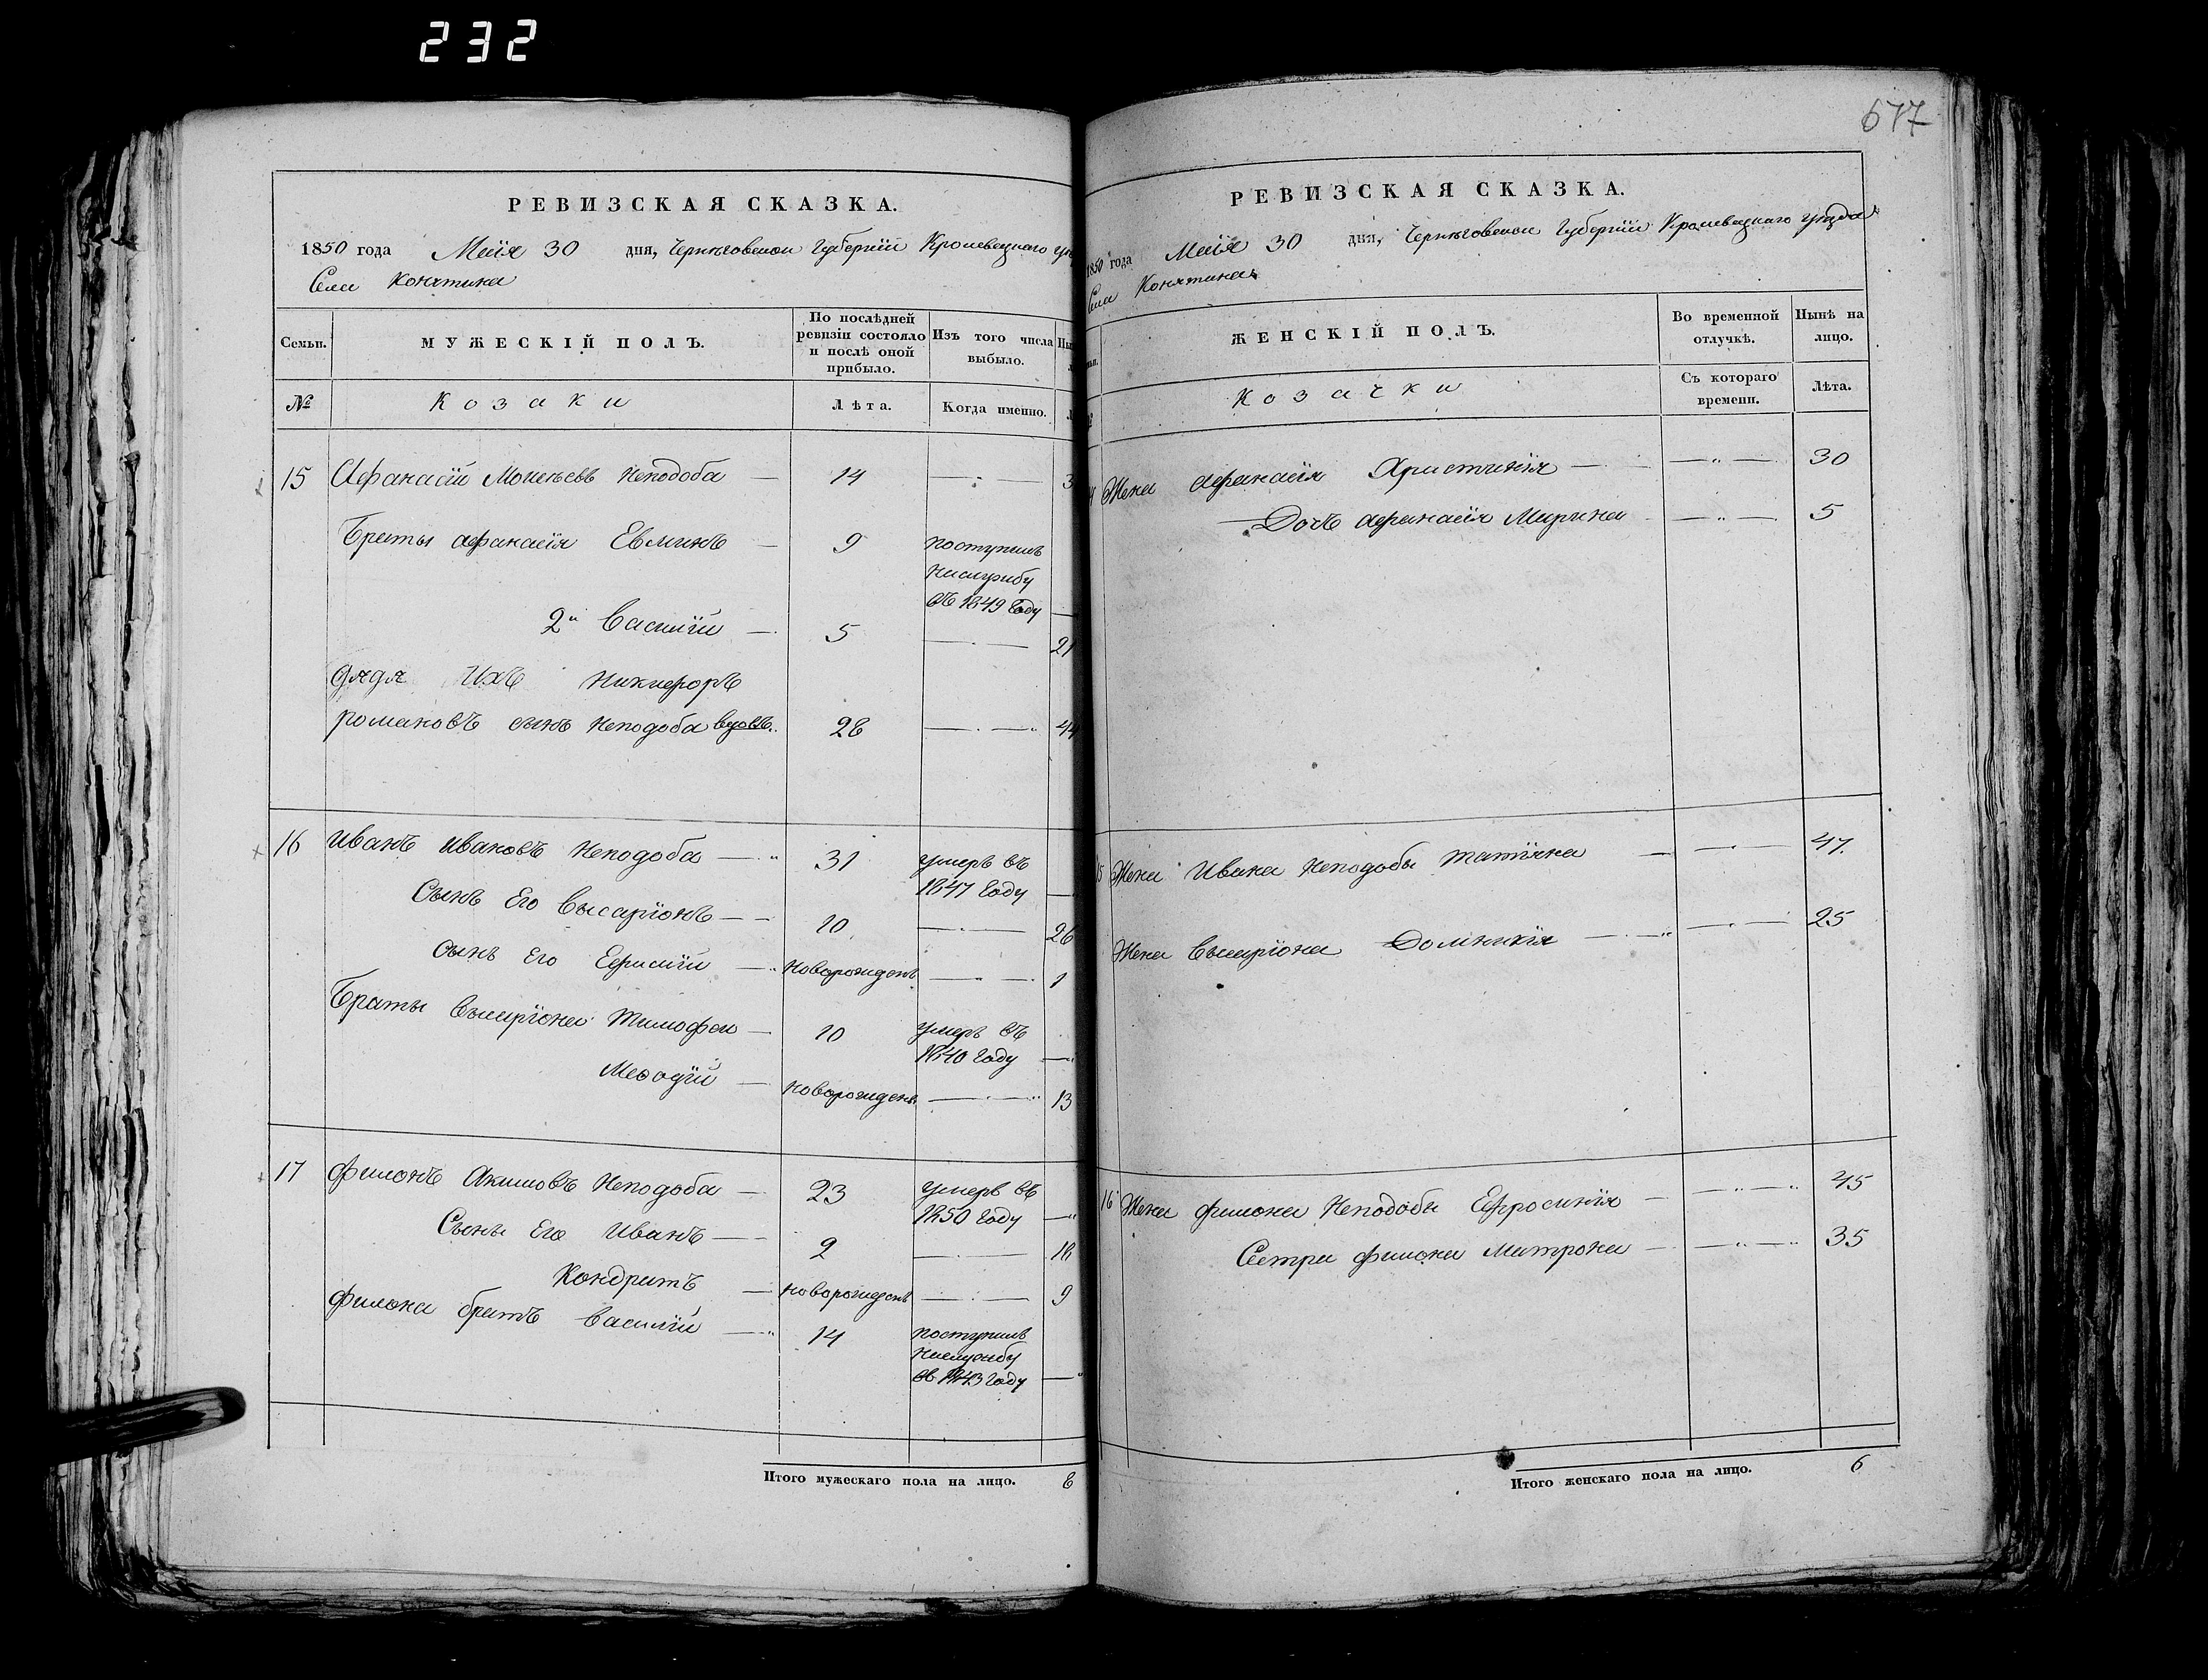 232
677
РЕВИЗСКАЯ СКАЗКА.
1850 года Маія 30 дня, Черниговской Губерніи Кролевецкаго
Села Конятина
Семьи. МУЖЕСКІЙ ПОЛЪ. По послѣдней ревизіи состояло и послѣ оной прибыло. Изъ того числа выбыло.
№ Козаки Лѣта. Когда именно.
15 Афанасій Мокѣевъ Неподоба — 14 —
Браты Афанасія Евминъ — 9 поступилъ
наслужбу
въ 1849 Году —
2й Василій — 5 — 21
Дядя Ихъ Никифоръ
Романовъ сынъ Неподоба вдовъ. 28 — 44
16 Иванъ Ивановъ Неподоба — 31 умеръ въ
1847 Году —
Сынъ Его Высаріонъ — 10 — 26
сынъ Его — новорожденъ — 1
Браты Высаріона Тимофей — 10 умеръ въ
1840 Году —
Меѳодій — новорожденъ — 13
17 Филонъ Акимовъ Неподоба — 23 умеръ въ
1850 Году —
Сыны Его Иванъ — 2 — 18
Кондратъ — новорожденъ — 9
Филона братъ Василій — 14 поступилъ
наслужбу
въ 1843 Году —
Итого мужескаго пола на лицо. 8
РЕВИЗСКАЯ СКАЗКА.
1850 года Маія 30 дня, Черниговской Губерніи Кролевецкаго уѣзда
Села Конятина
ЖЕНСКІЙ ПОЛЪ. Во временной отлучкѣ. Нынѣ на лицо.
Козачки Съ котораго времени. Лѣта.
Жена Афанасія Христинія — — 30
Дочь Афанасія Марина — 5
Жена Ивана Неподобы Татіяна — — 47.
Жена Высаріона Домникія — — 25
16 Жена Филона Неподобы Ефросинія — — 45
Сестра Филона Матрона — — 35
Итого женскаго пола на лицо. 6